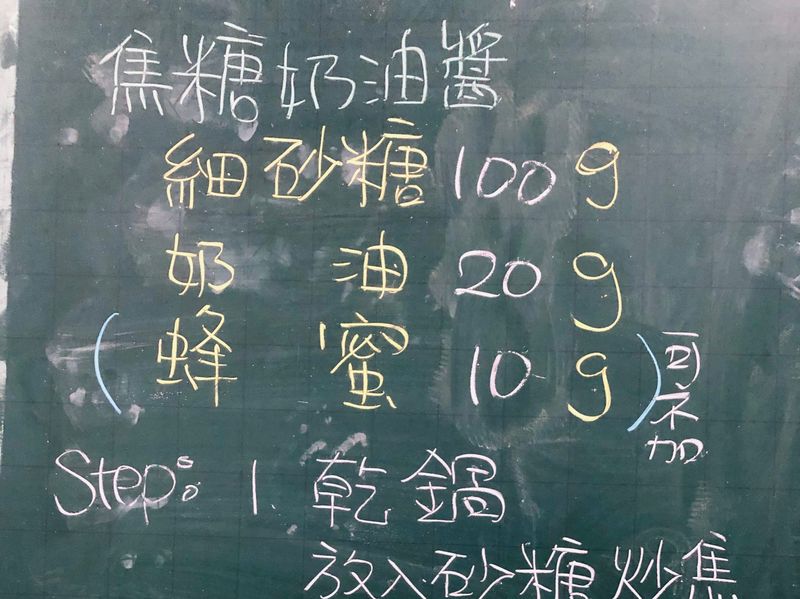 焦糖奶油醬
細砂糖100g
奶油20g
(蜂蜜10g)可不加
Step: 1. 乾鍋
放入砂糖炒焦